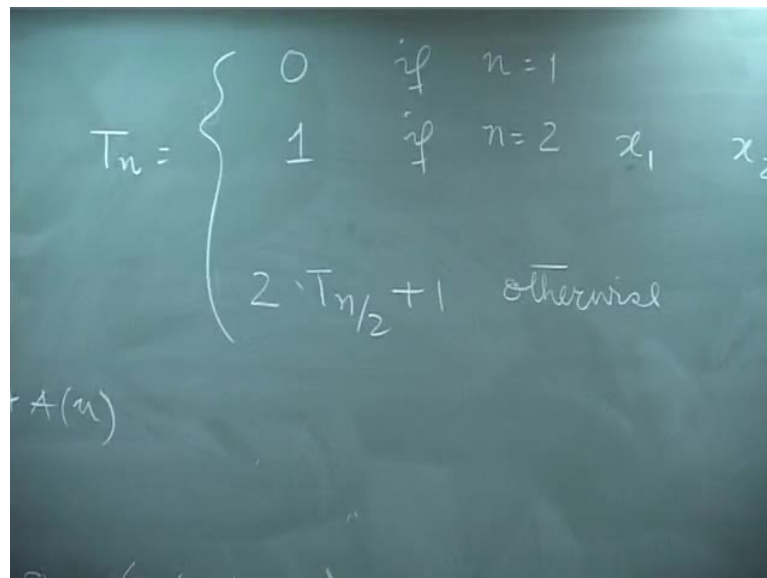 0 if n=1
T_n = 1 if n=2 x_1 x_2
2 · T_{n/2} + 1 otherwise
A(n)